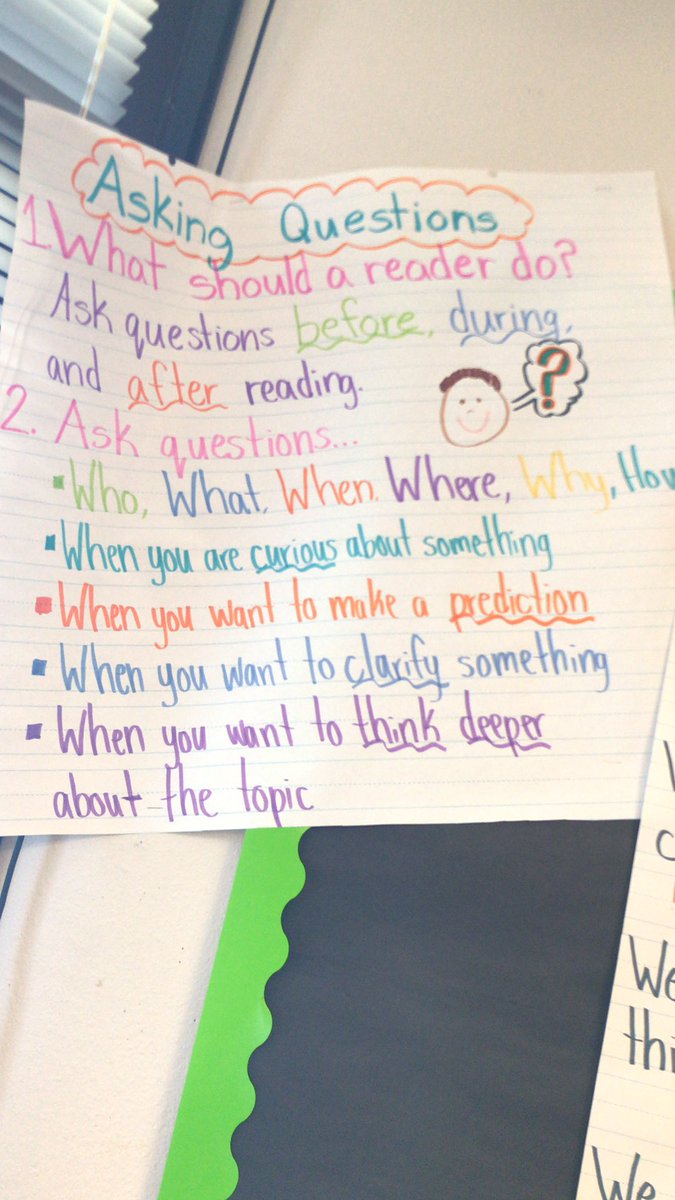 Asking Questions
1. What should a reader do?
Ask questions before, during,
and after reading.
?
2. Ask questions...
▪ Who, What, When, Where, Why, How
▪ When you are curious about something
▪ When you want to make a prediction
▪ When you want to clarify something
▪ When you want to think deeper
about the topic
We
thi
We